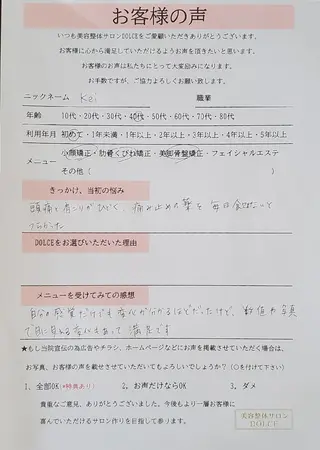 お客様の声
いつも美容整体サロンDOLCEをご愛顧いただきありがとうございます。
お客様に心から満足していただけるようお声を頂きたいと思います。
お客様のお声は私たちにとって大変励みになります。
お手数ですが、ご協力よろしくお願い致します。
ニックネーム Kei 職業
年齢 10代・20代・30代・40代・50代・60代・70代・80代
利用年月 初めて・1年未満・1年以上・2年以上・3年以上・4年以上・5年以上
メニュー 小顔矯正・肋骨くびれ矯正・美脚骨盤矯正・フェイシャルエステ
その他( )
きっかけ、当初の悩み
頭痛と肩こりがひどく、痛み止めの薬を毎日飲まないと
つらかった
DOLCEをお選びいただいた理由
メニューを受けてみての感想
自分の感覚だけでも変化が分かるほどだったけど、数値や写真
で目に見える変化もあって満足です
★もし当院宣伝の為広告やチラシ、ホームページなどにお声を掲載させていただく場合は、
お写真、お客様の声を載せさせていただいてもよろしいでしょうか?(○を付けて下さい)
1. 全部OK(*特典あり) 2. お声だけならOK 3. ダメ
貴重なご意見、ありがとうございました。今後もより一層お客様に
喜んでいただけるサロン作りを目指して参ります。
美容整体サロン
DOLCE